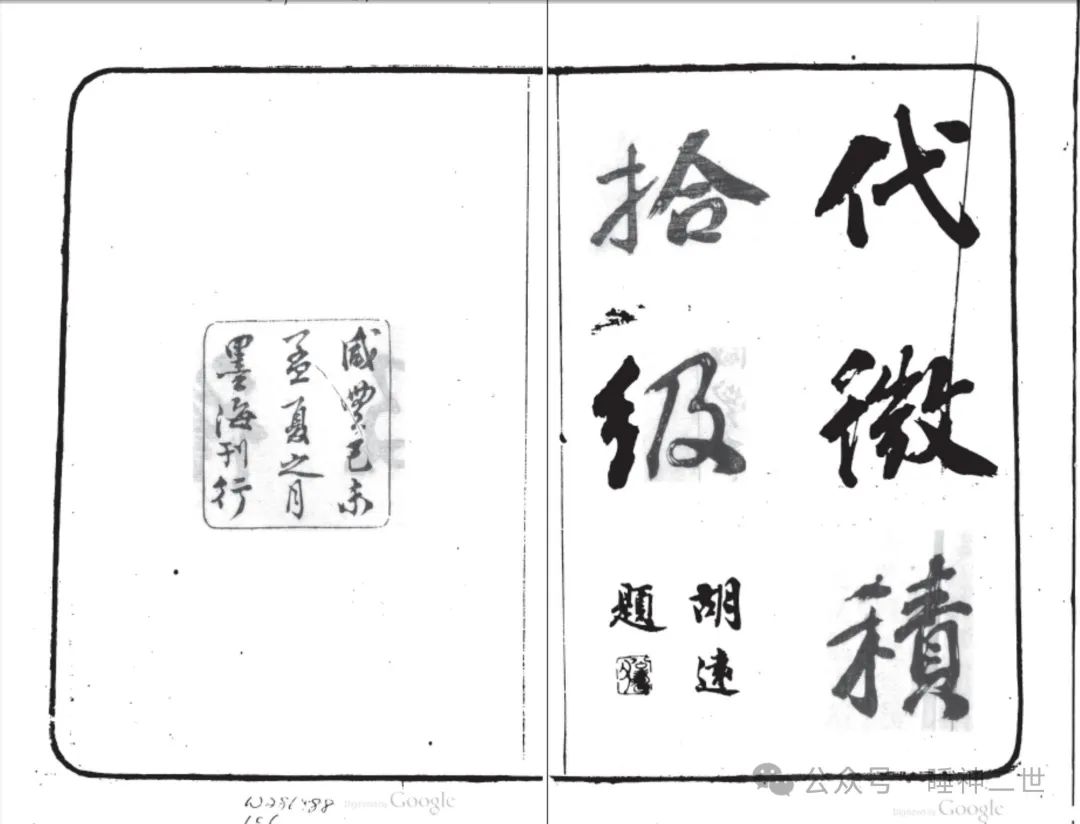 代微積
拾級
胡遠
題
咸豐己未
孟夏之月
墨海刊行
Digitized by Google
Digitized by Google
公众号 · 睡神二世